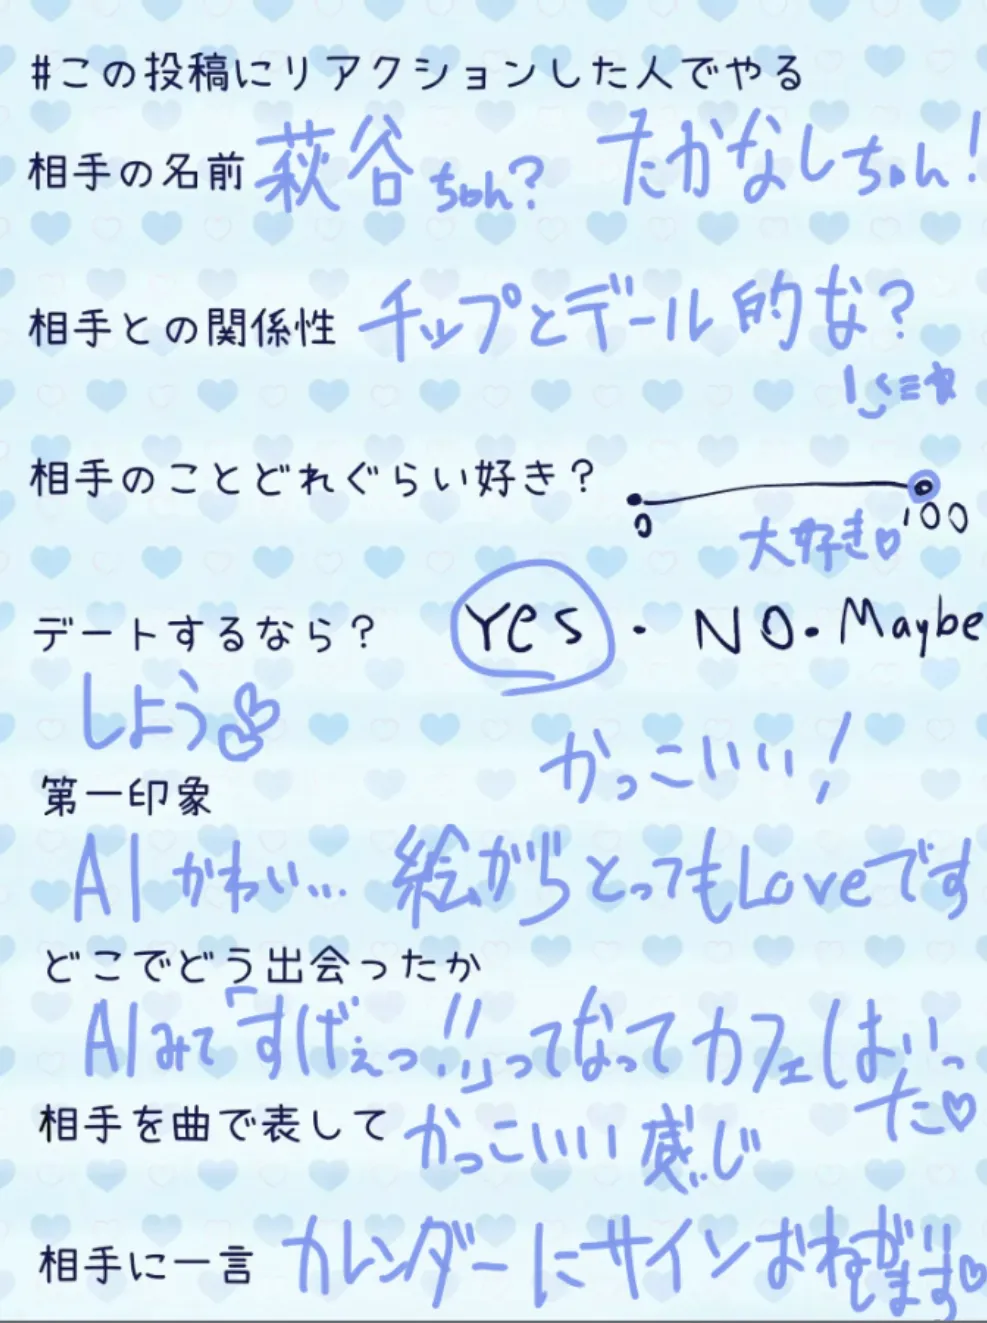 #この投稿にリアクションした人でやる
相手の名前 萩谷ちゃん? たかなしちゃん!
相手との関係性 チップとデール的な?
相手のことどれぐらい好き?
0 100
大好き♡
デートするなら? Yes・NO・Maybe
しよう
かっこいい!
第一印象
AIかわい… 絵がらとってもLoveです
どこでどう出会ったか
AIみて「すげぇっ!!」ってなってカフェはいっ
た♡
相手を曲で表して かっこいい感じ
相手に一言 カレンダーにサインおねがい
します♡